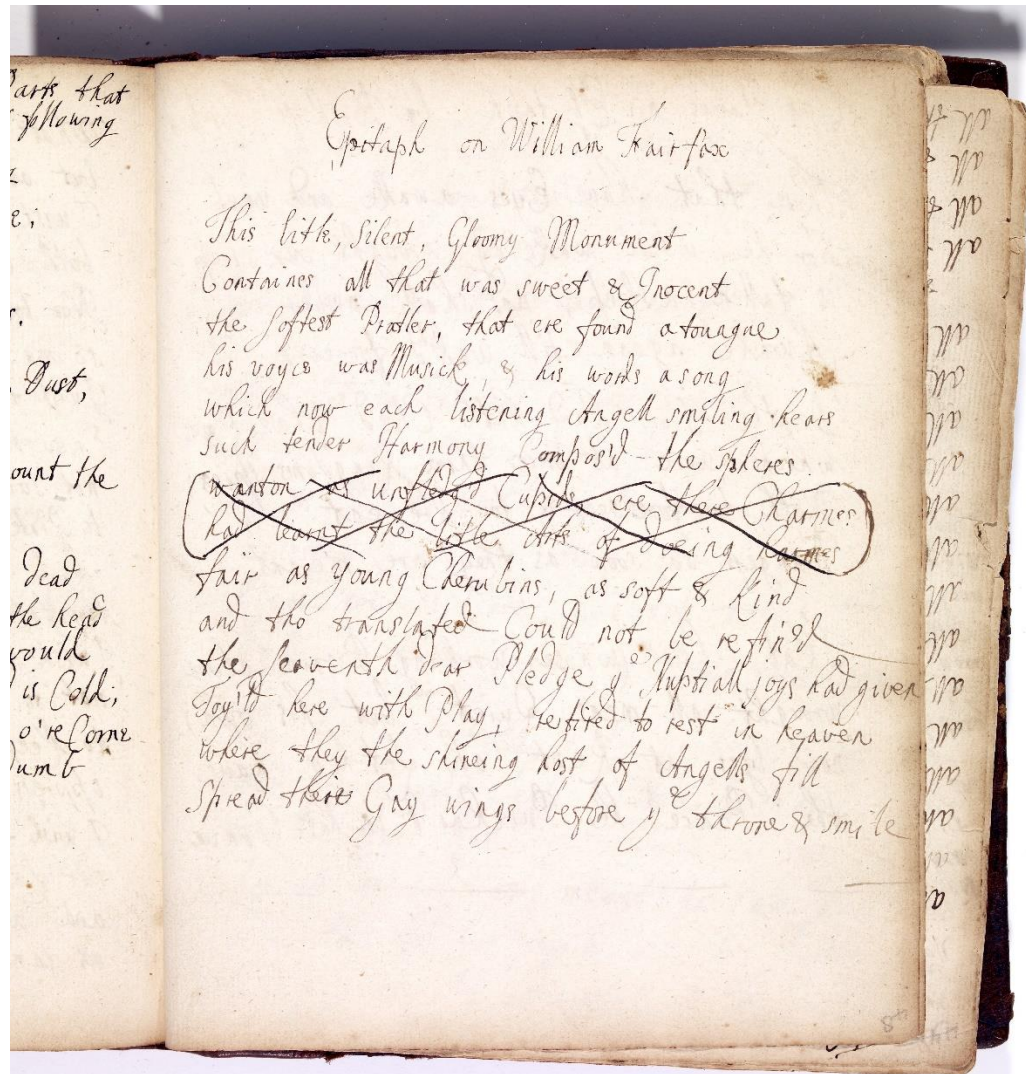 arts that
following
e;
r.
Dust,
ount the
Dead
the head
would
is Cold;
o're Come
umb
Epitaph on William Fairfax
This litle, Silent, Gloomy Monument
Containes all that was sweet & Inocent
the softest Pratler, that ere found a toungue
his voyce was Musick, & his words a song
which now each listening Angell smyling hears
such tender Harmony Compos'd the spheres
wanton as unfledg'd Cupids ere there Charmes
had learnt the litle Arts of doeing harmes
fair as young Cherubins, as soft & kind
and tho translated Could not be refin'd
the seaventh dear Pledge ye Nuptiall joys had given
Toy'ld here with Play, retired to rest in heaven
where they the shineing host of Angells fill
Spread there Gay wings before ye throne & smile